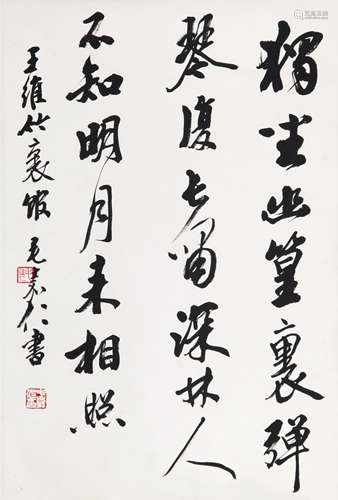 獨坐幽篁裏彈
琴復長嘯深林人
不知明月来相照
王維竹裏館 毛仁書